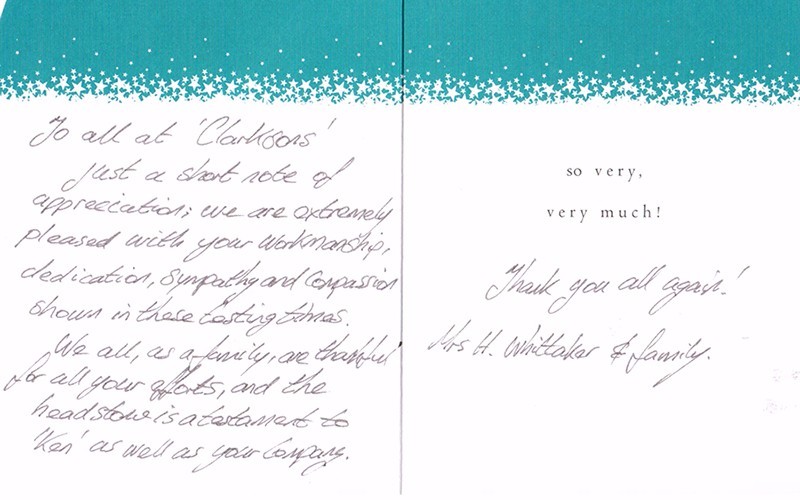 To all at 'Clarksons'
Just a short note of
appreciation; we are extremely
pleased with your workmanship,
dedication, sympathy and compassion
shown in these testing times.
We all, as a family, are thankful
for all your efforts, and the
headstone is a testament to
'Ken' as well as your Company.
so very,
very much!
Thank you all again!
Mrs H. Whittaker & family.